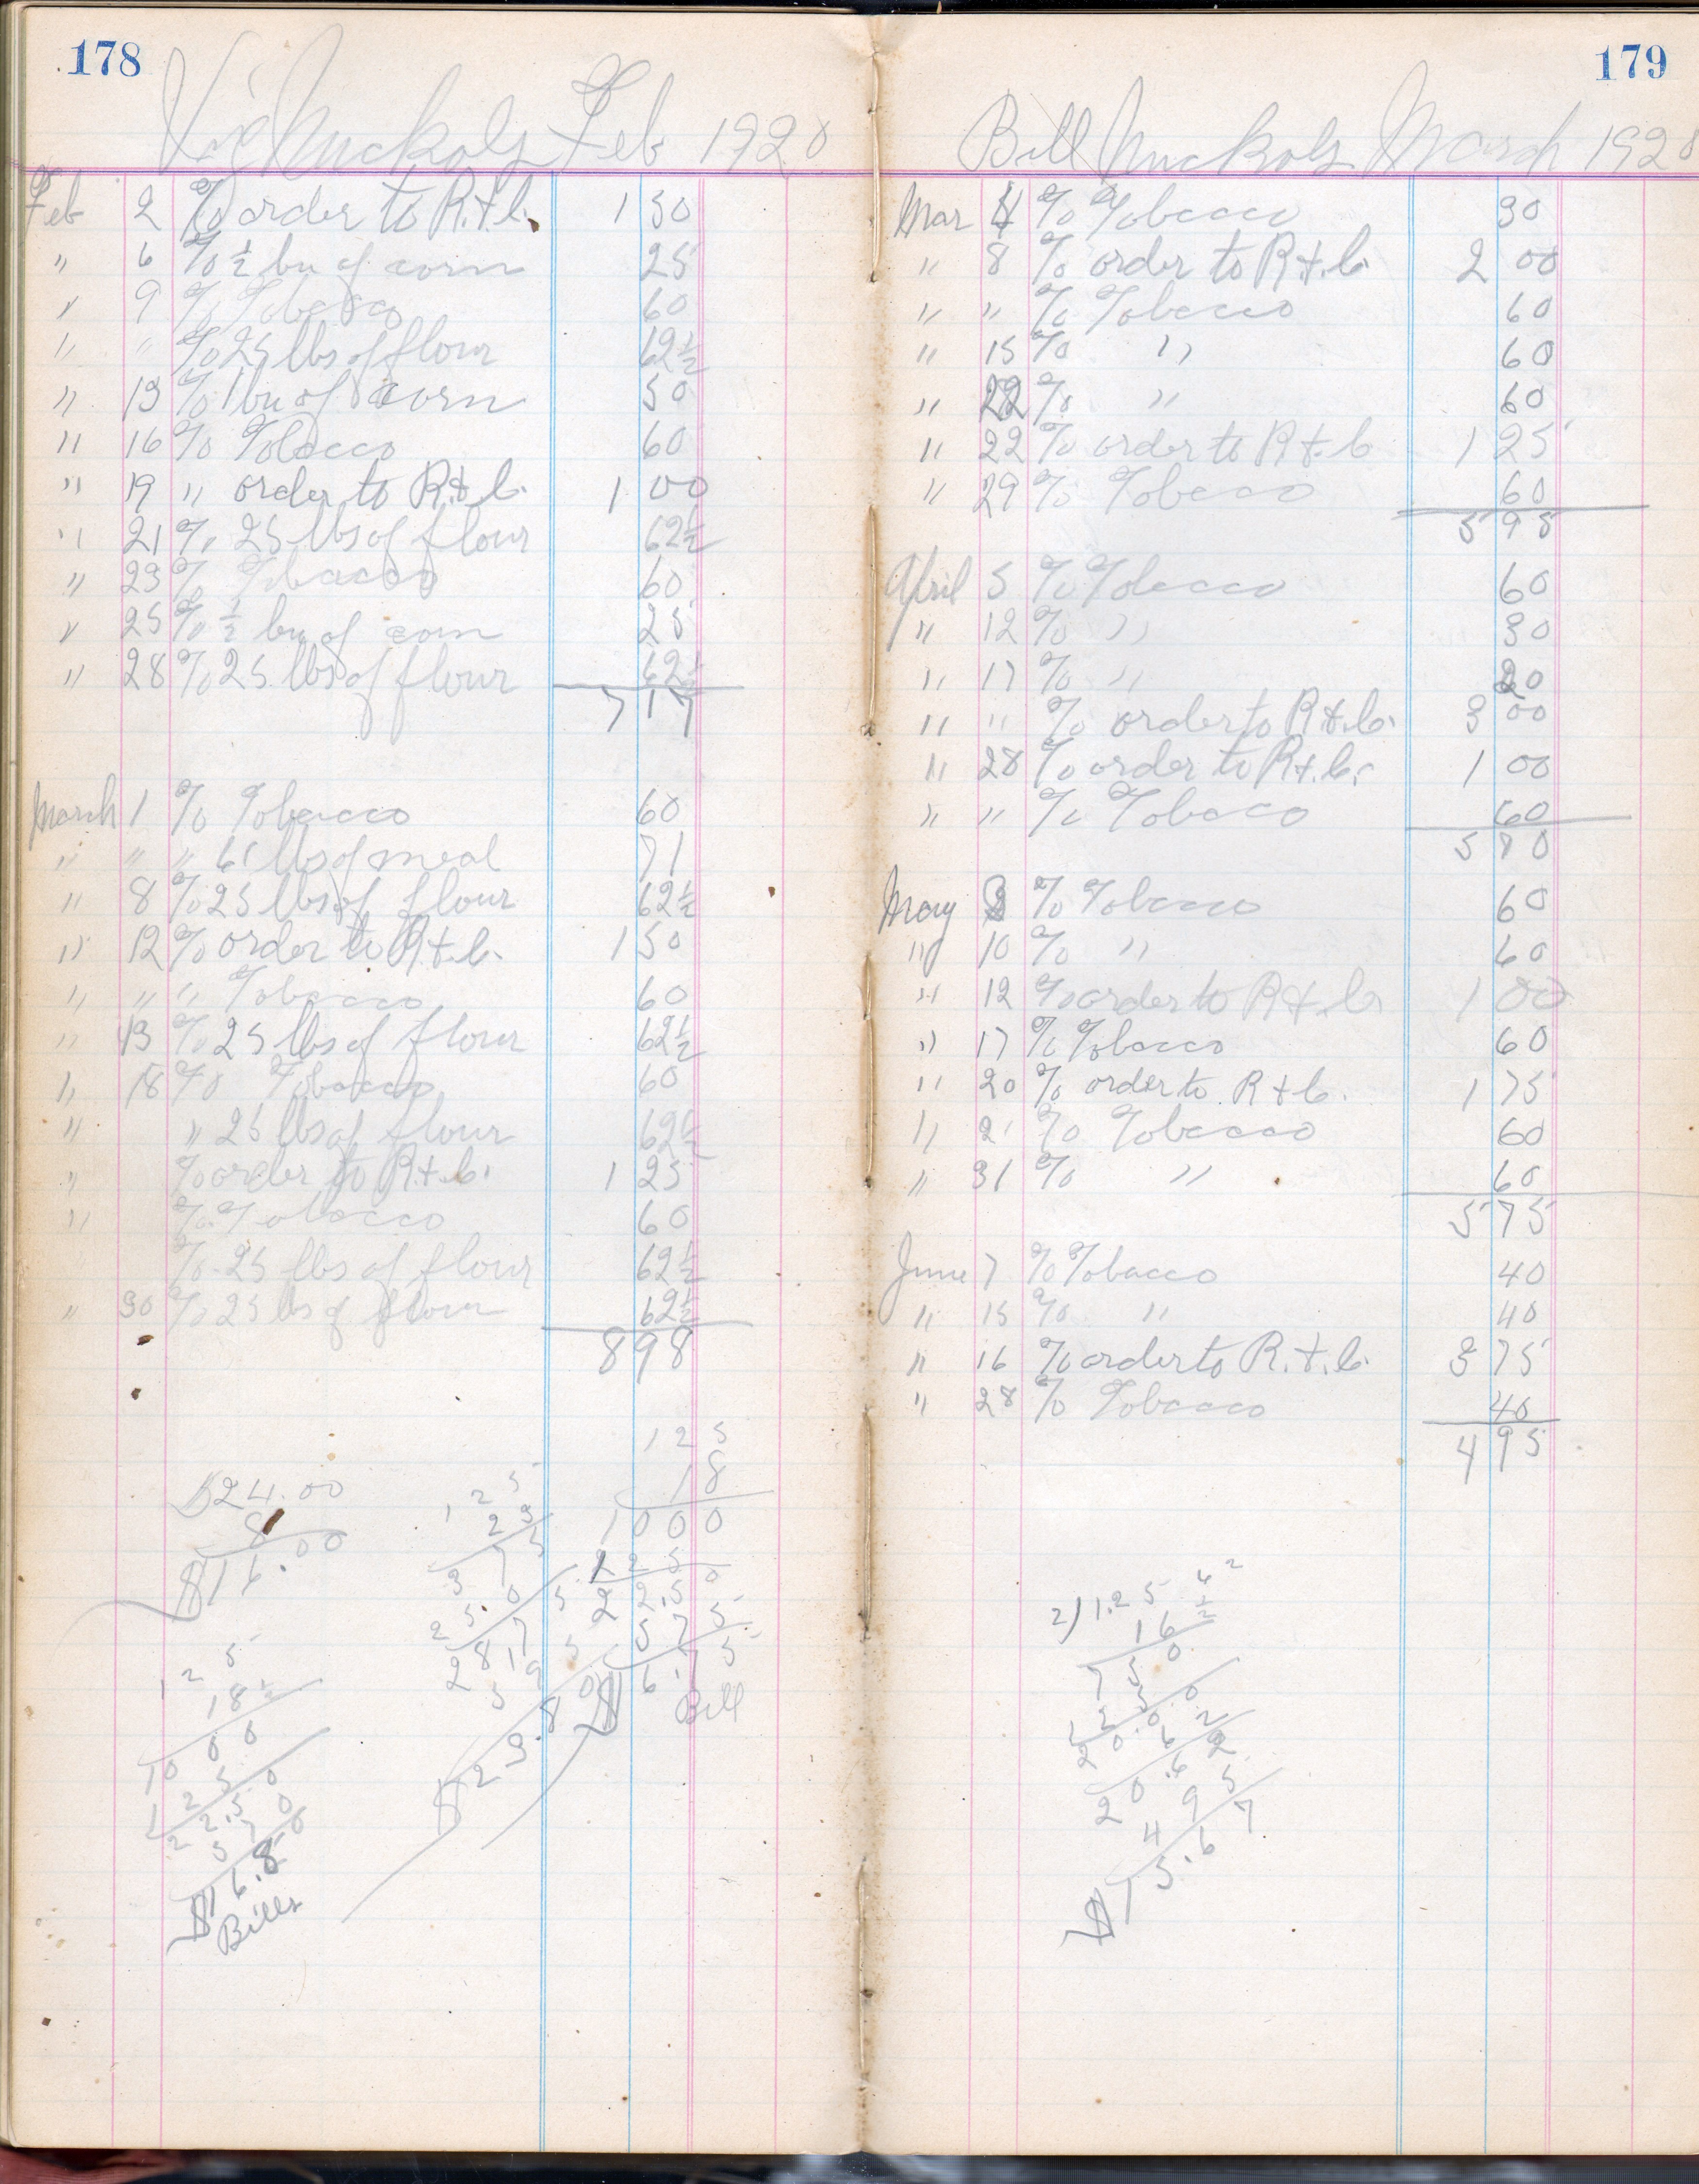 178
Vic Nuckols Feb 1920
Feb 2 % order to R.+C. 1 50
" 6 % ½ bu of corn 25
" 9 % Tobacco 60
" " % 25 lbs of flour 62½
" 13 % 1 bu of corn 50
" 16 % Tobacco 60
" 19 " order to R.+C. 1 00
" 21 % 25 lbs of flour 62½
" 23 % Tobacco 60
" 25 % ½ bu of corn 25
" 28 % 25 lbs of flour 62½
7 17
March 1 % Tobacco 60
" " " 61 lbs of meal 71
" 8 % 25 lbs of flour 62½
" 12 % order to R.+C. 1 50
" " " Tobacco 60
" 13 % 25 lbs of flour 62½
" 18 % Tobacco 60
" " 25 lbs of flour 62½
" % order to R.+C. 1 25
" % Tobacco 60
% 25 lbs of flour 62½
" 30 % 25 lbs of flour 62½
8 98
$24.00
8
$16.00
125
23
375
250
2875
595
$23.80
125
18
1000
125
22.50
575
$16.75
Bill
125
18½
1000
125
22.50
570
$16.8
Bills
179
Bill Nuckols March 1920
Mar 4 % Tobacco 30
" 8 % order to R+C. 2 00
" " % Tobacco 60
" 15 % " 60
" 22 % " 60
" 22 % order to R+C 1 25
" 29 % Tobacco 60
5 95
April 5 % Tobacco 60
" 12 % " 30
" 17 % " 20
" " % order to R+C. 3 00
" 28 % order to R+C. 1 00
" " % Tobacco 60
5 70
May 3 % Tobacco 60
" 10 % " 60
" 12 % order to R+C 1 00
" 17 % Tobacco 60
" 20 % order to R+C. 1 75
" 2 % Tobacco 60
" 31 % " 60
5 75
June 7 % Tobacco 40
" 15 % " 40
" 16 % order to R.+.C. 3 75
" 28 % Tobacco 40
4 95
2)1.25 62
16½
750
125
20.00
62
20.62
495
$15.67